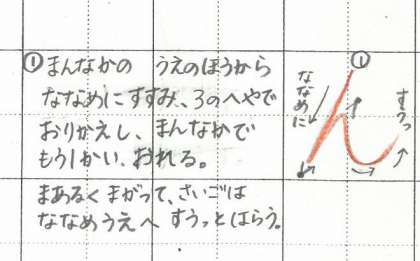 ①まんなかの うえのほうから
ななめにすすみ、3のへやで
おりかえし、まんなかで
もう1かい、おれる。
まあるくまがって、さいごは
ななめうえへ すうっとはらう。
①
ななめに
すうっ
ん